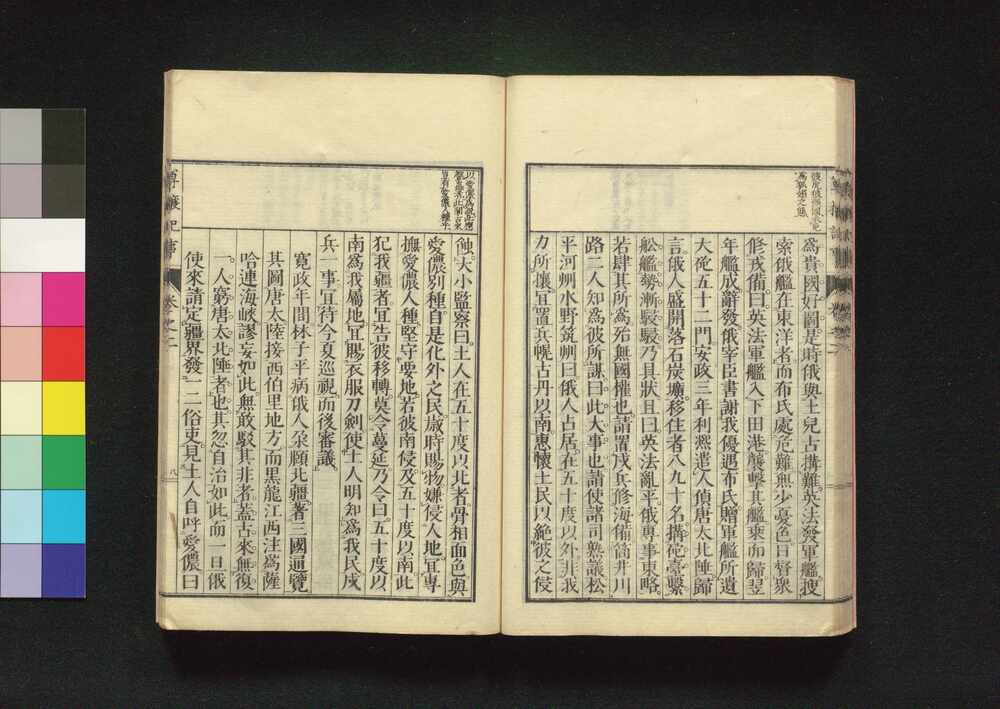 為貴國好圖是時俄與土兒古搆難英法發軍艦搜
索俄艦在東洋者而布氏處危難無少憂色日督衆
修戎備曰英法軍艦入下田港襲擊其艦乘而歸翌
年艦成辭發俄宰臣書謝我優遇布氏贈軍艦所遺
大砲五十二門安政三年利凞遣人偵唐太北陲歸
言俄人盛開落石炭壙移住者八九十名搆砲臺繫
舩艦勢漸駸駸乃具狀且曰英法亂平俄專事東略
若肆其所為殆無國權也請置戍兵修海備筒井川
路二人知為彼所謀曰此大事也請使諸司熟議松
平河州水野筑州曰俄人占居在五十度以外非我
力所攘宜置兵幌古丹以南惠懷土民以絶彼之侵
蝕大小監察曰土人在五十度以北者骨相面色與
愛儂別種自是化外之民歲時賜物嫌侵人地宜專
撫愛儂人種堅守要地若彼南侵及五十度以南此
犯我疆者宜告彼移轉莫令蔓延乃令曰五十度以
南為我屬地宜賜衣服刀劍使土人明知為我民戍
兵一事宜待今夏巡視而後審議
寬政年間林子平病俄人朶頤北疆著三國通覽
其圖唐太陸接西伯里地方而黑龍江西注為薩
哈連海峽謬妄如此無敢駁其非者蓋古來無復
一人窮唐太北陲者也其忽自治如此而一旦俄
使來請定疆界發一二俗吏見土人自呼愛儂曰
卷之二
八